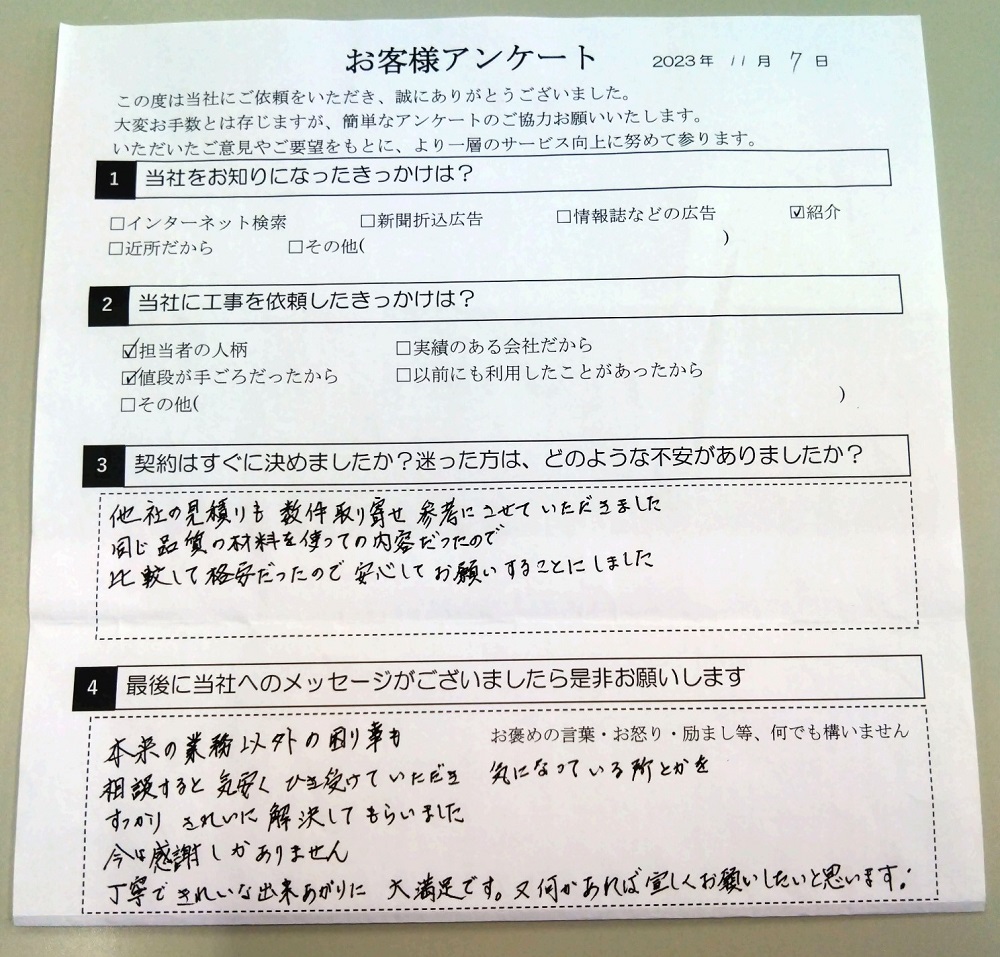 お客様アンケート 2023年 11月 7日
この度は当社にご依頼をいただき、誠にありがとうございました。
大変お手数とは存じますが、簡単なアンケートのご協力お願いいたします。
いただいたご意見やご要望をもとに、より一層のサービス向上に努めて参ります。
1 当社をお知りになったきっかけは？
□インターネット検索 □新聞折込広告 □情報誌などの広告 ☑紹介
□近所だから □その他( )
2 当社に工事を依頼したきっかけは？
☑担当者の人柄 □実績のある会社だから
☑値段が手ごろだったから □以前にも利用したことがあったから
□その他( )
3 契約はすぐに決めましたか？迷った方は、どのような不安がありましたか？
他社の見積りも 数件取り寄せ 参考にさせていただきました
同じ品質の材料を使っての内容だったので
比較して格安だったので安心してお願いすることにしました
4 最後に当社へのメッセージがございましたら是非お願いします
お褒めの言葉・お怒り・励まし等、何でも構いません
本来の業務以外の困り事も
相談すると気安くひき受けていただき 気になっている所とかを
すっかり きれいに 解決してもらいました
今は感謝しかありません
丁寧できれいな出来あがりに 大満足です。又何かあれば宜しくお願いしたいと思います。